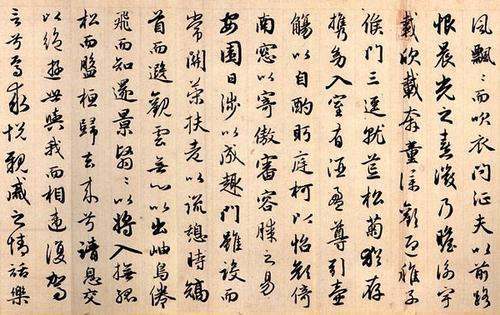 風飄〻而吹衣問征夫以前路
恨晨光之熹微乃瞻衡宇
載欣載奔童僕歡迎稚子
候門三逕就荒松菊猶存
携幼入室有酒盈尊引壺
觴以自酌眄庭柯以怡顏倚
南窓以寄傲審容膝之易
安園日涉以成趣門雖設而
常關策扶老以流憩時矯
首而遐觀雲無心以出岫鳥倦
飛而知還景翳〻以將入撫孤
松而盤桓歸去來兮請息交
以絶遊世與我而相違復駕
言兮焉求悅親戚之情話樂